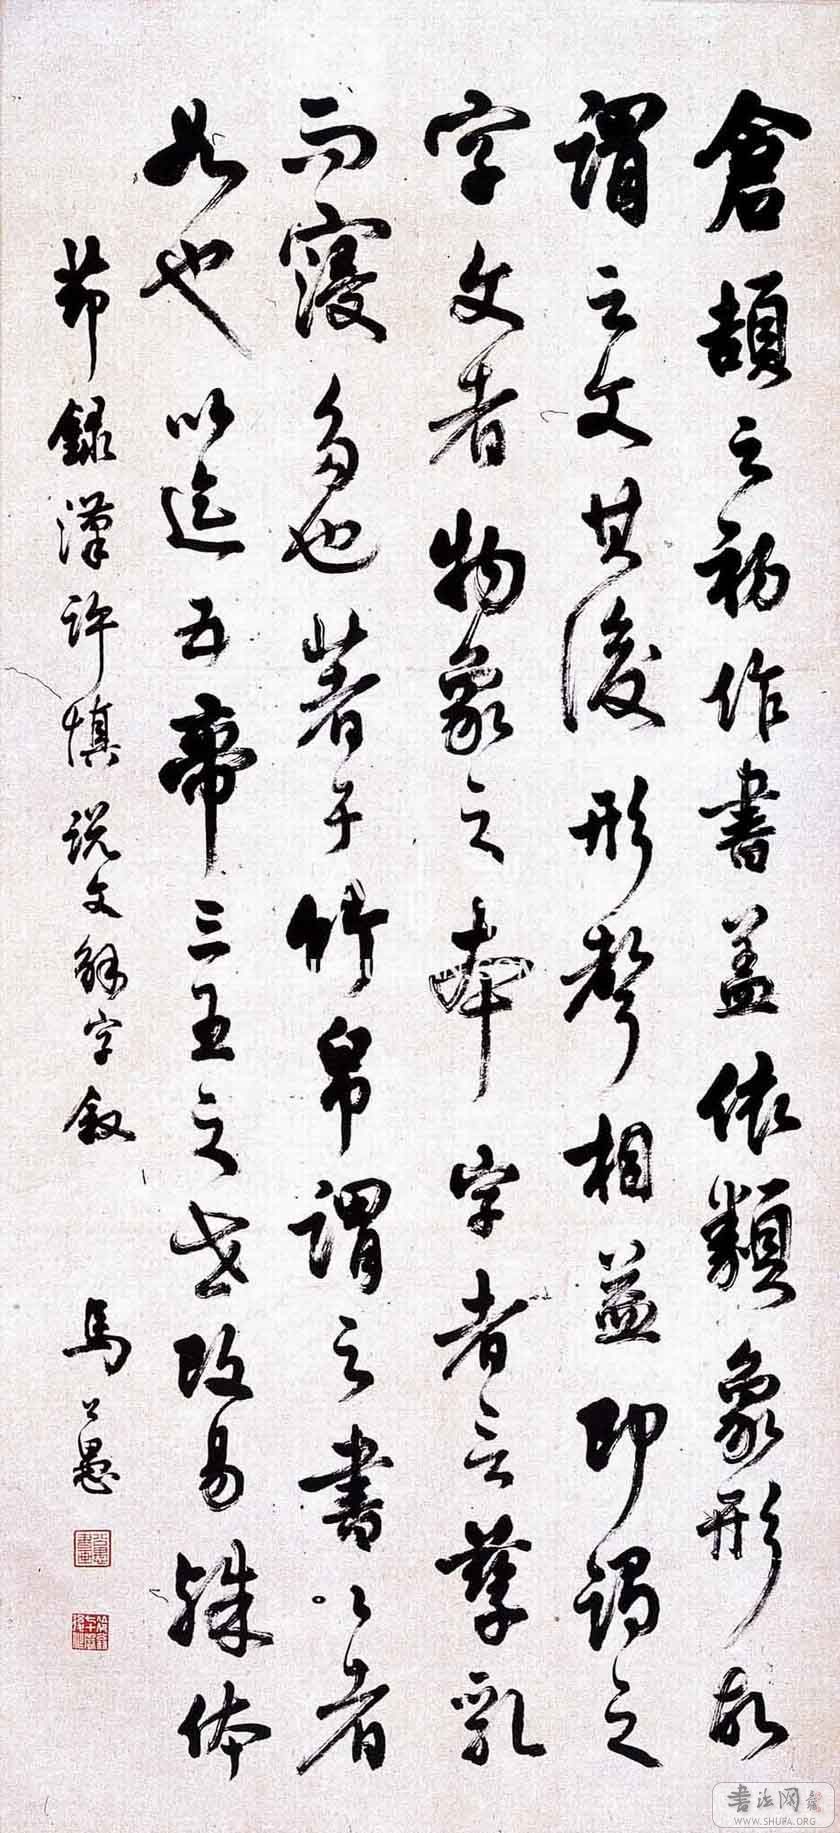 倉頡之初作書蓋依類象形故
謂之文其後形聲相益即謂之
字文者物象之本字者言孳乳
而寖多也著于竹帛謂之書〻者
如也以迄五帝三王之世改易殊体
節錄漢許慎說文解字敘
馬公愚
書法网
WWW.SHUFA.ORG